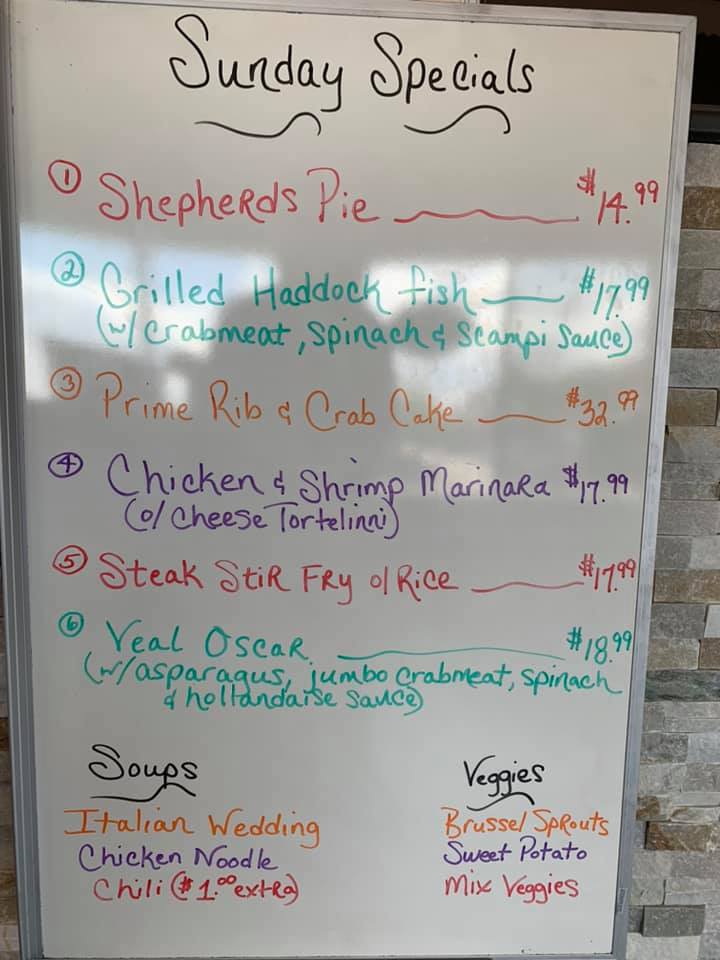 Sunday Specials
① Shepherds Pie $14.99
② Grilled Haddock fish $17.99
(w/ crabmeat, spinach & scampi sauce)
③ Prime Rib & Crab Cake $32.99
④ Chicken & Shrimp Marinara $17.99
(o/ cheese Tortelinni)
⑤ Steak Stir Fry o/ Rice $17.99
⑥ Veal Oscar $18.99
(w/asparagus, jumbo crabmeat, spinach
& hollandaise sauce)
Soups
Italian Wedding
Chicken Noodle
Chili ($1.00 extra)
Veggies
Brussel Sprouts
Sweet Potato
Mix Veggies